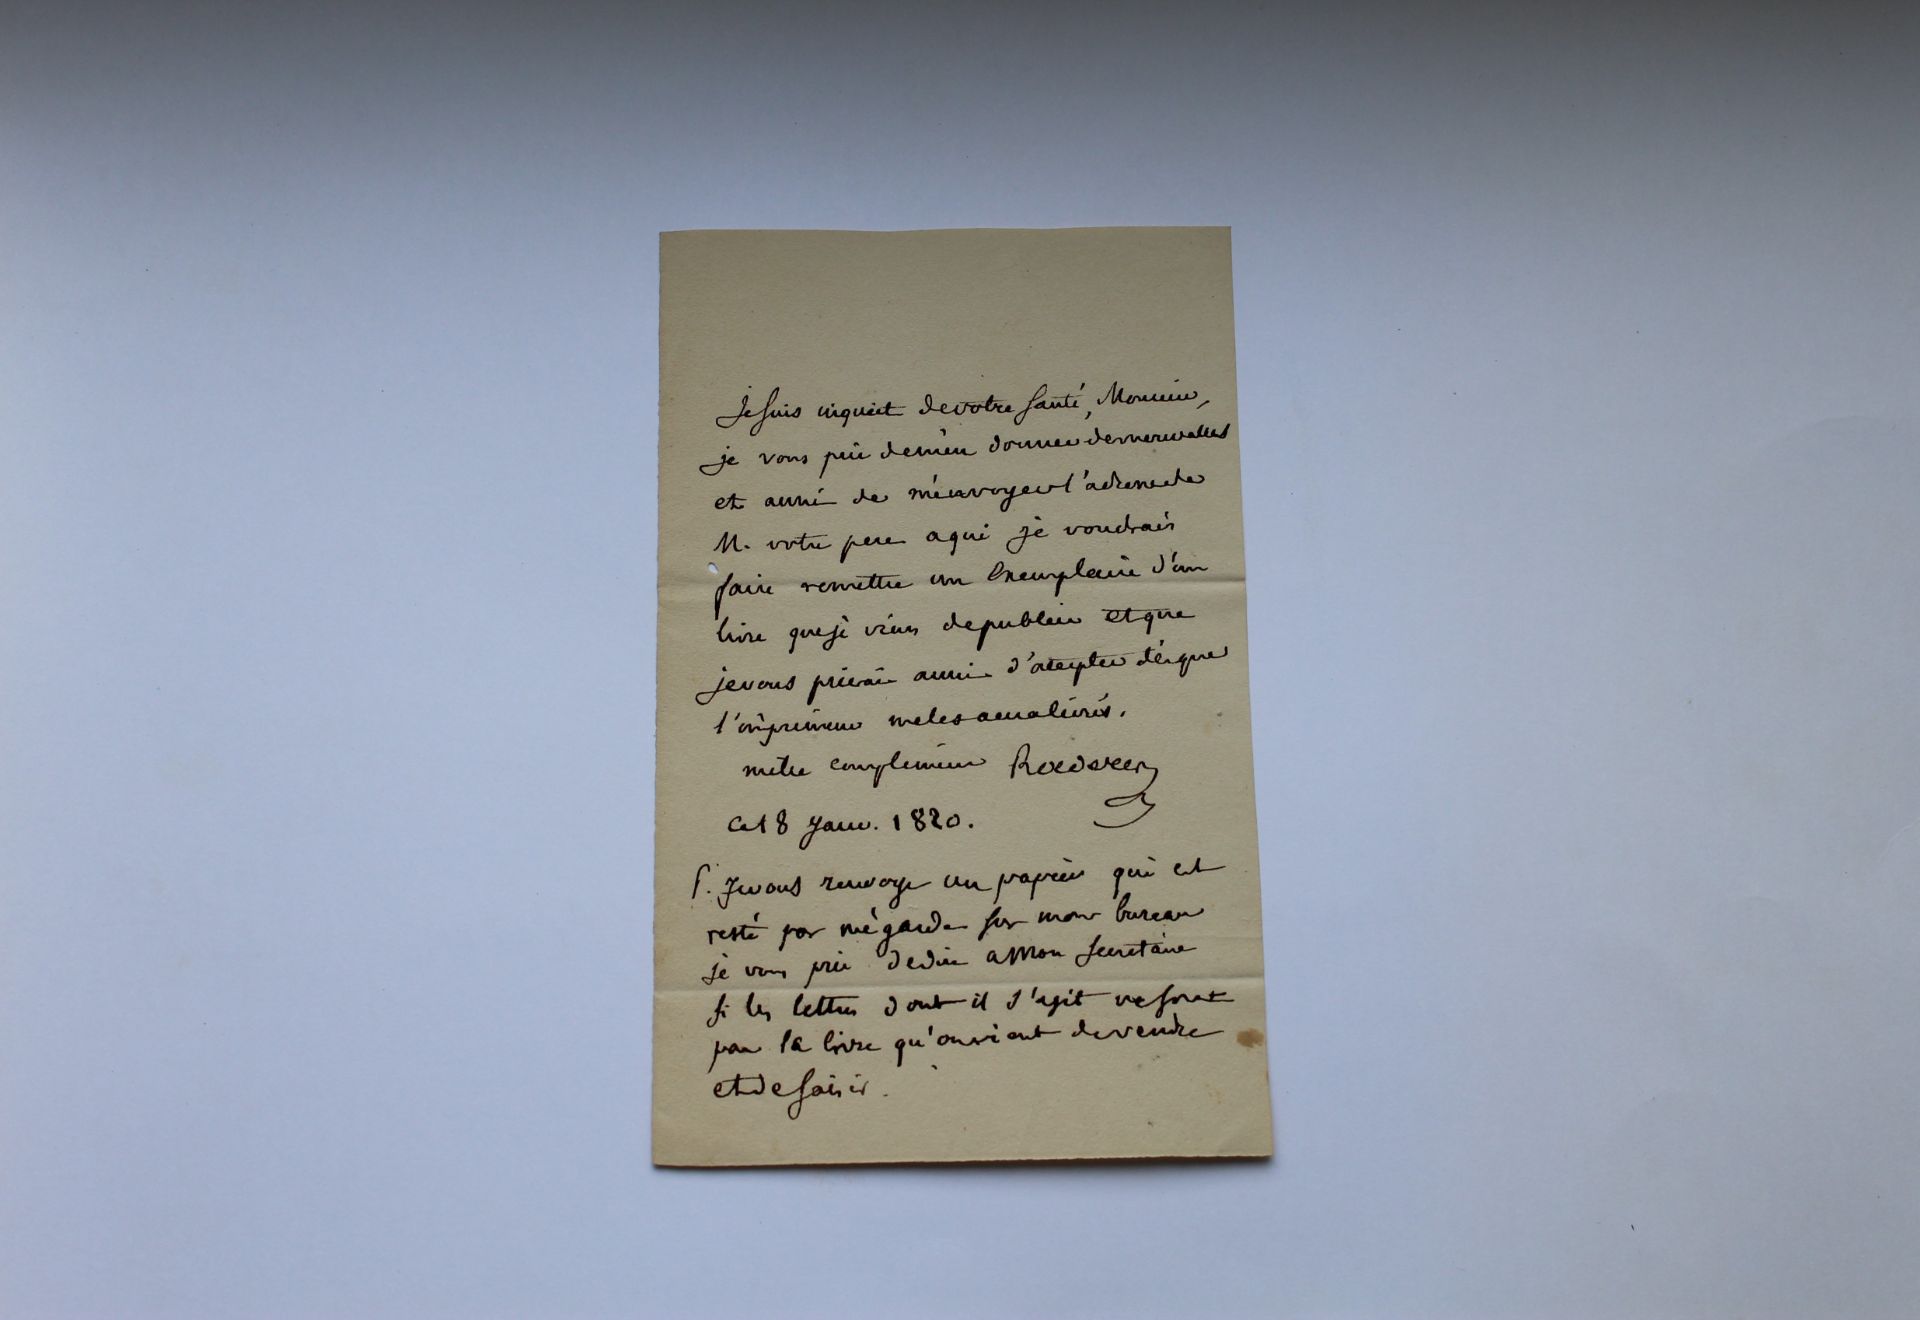 Je suis inquiet de votre santé, Monsieur,
je vous prie de m'en donner des nouvelles
et aussi de m'envoyer l'adresse de
M. votre pere a qui je voudrais
faire remettre un Exemplaire d'un
livre que je viens de publier et que
je vous prierai aussi d'accepter dès que
l'imprimeur me les aura livrés.
mille complimens Roederer
Ce 18 Janv. 1820.
P. Je vous renvoye un papier qui est
resté par mégarde sur mon bureau
je vous prie de dire a Mon Secretaire
si les lettres dont il s'agit ne sont
pas le livre qu'on vient de vendre
et de saisir.